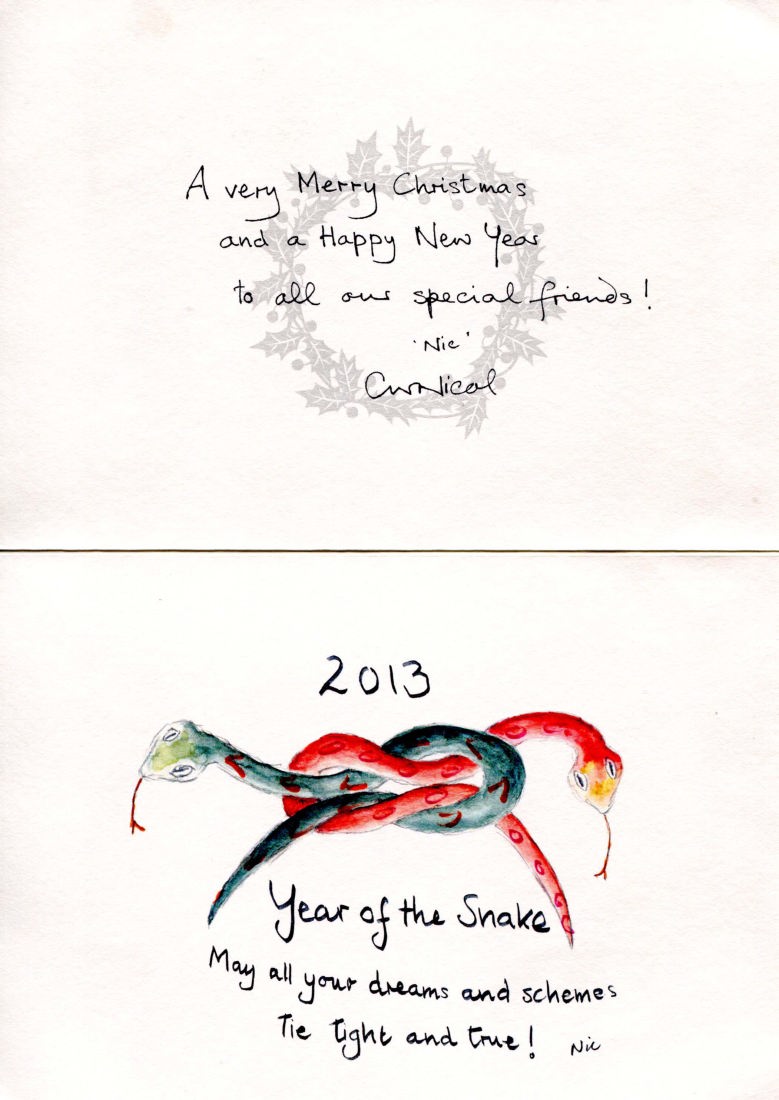 A very Merry Christmas
and a Happy New Year
to all our special friends!
'Nic'
CWNicol
2013
Year of the Snake
May all your dreams and schemes
Tie tight and true!
Nic